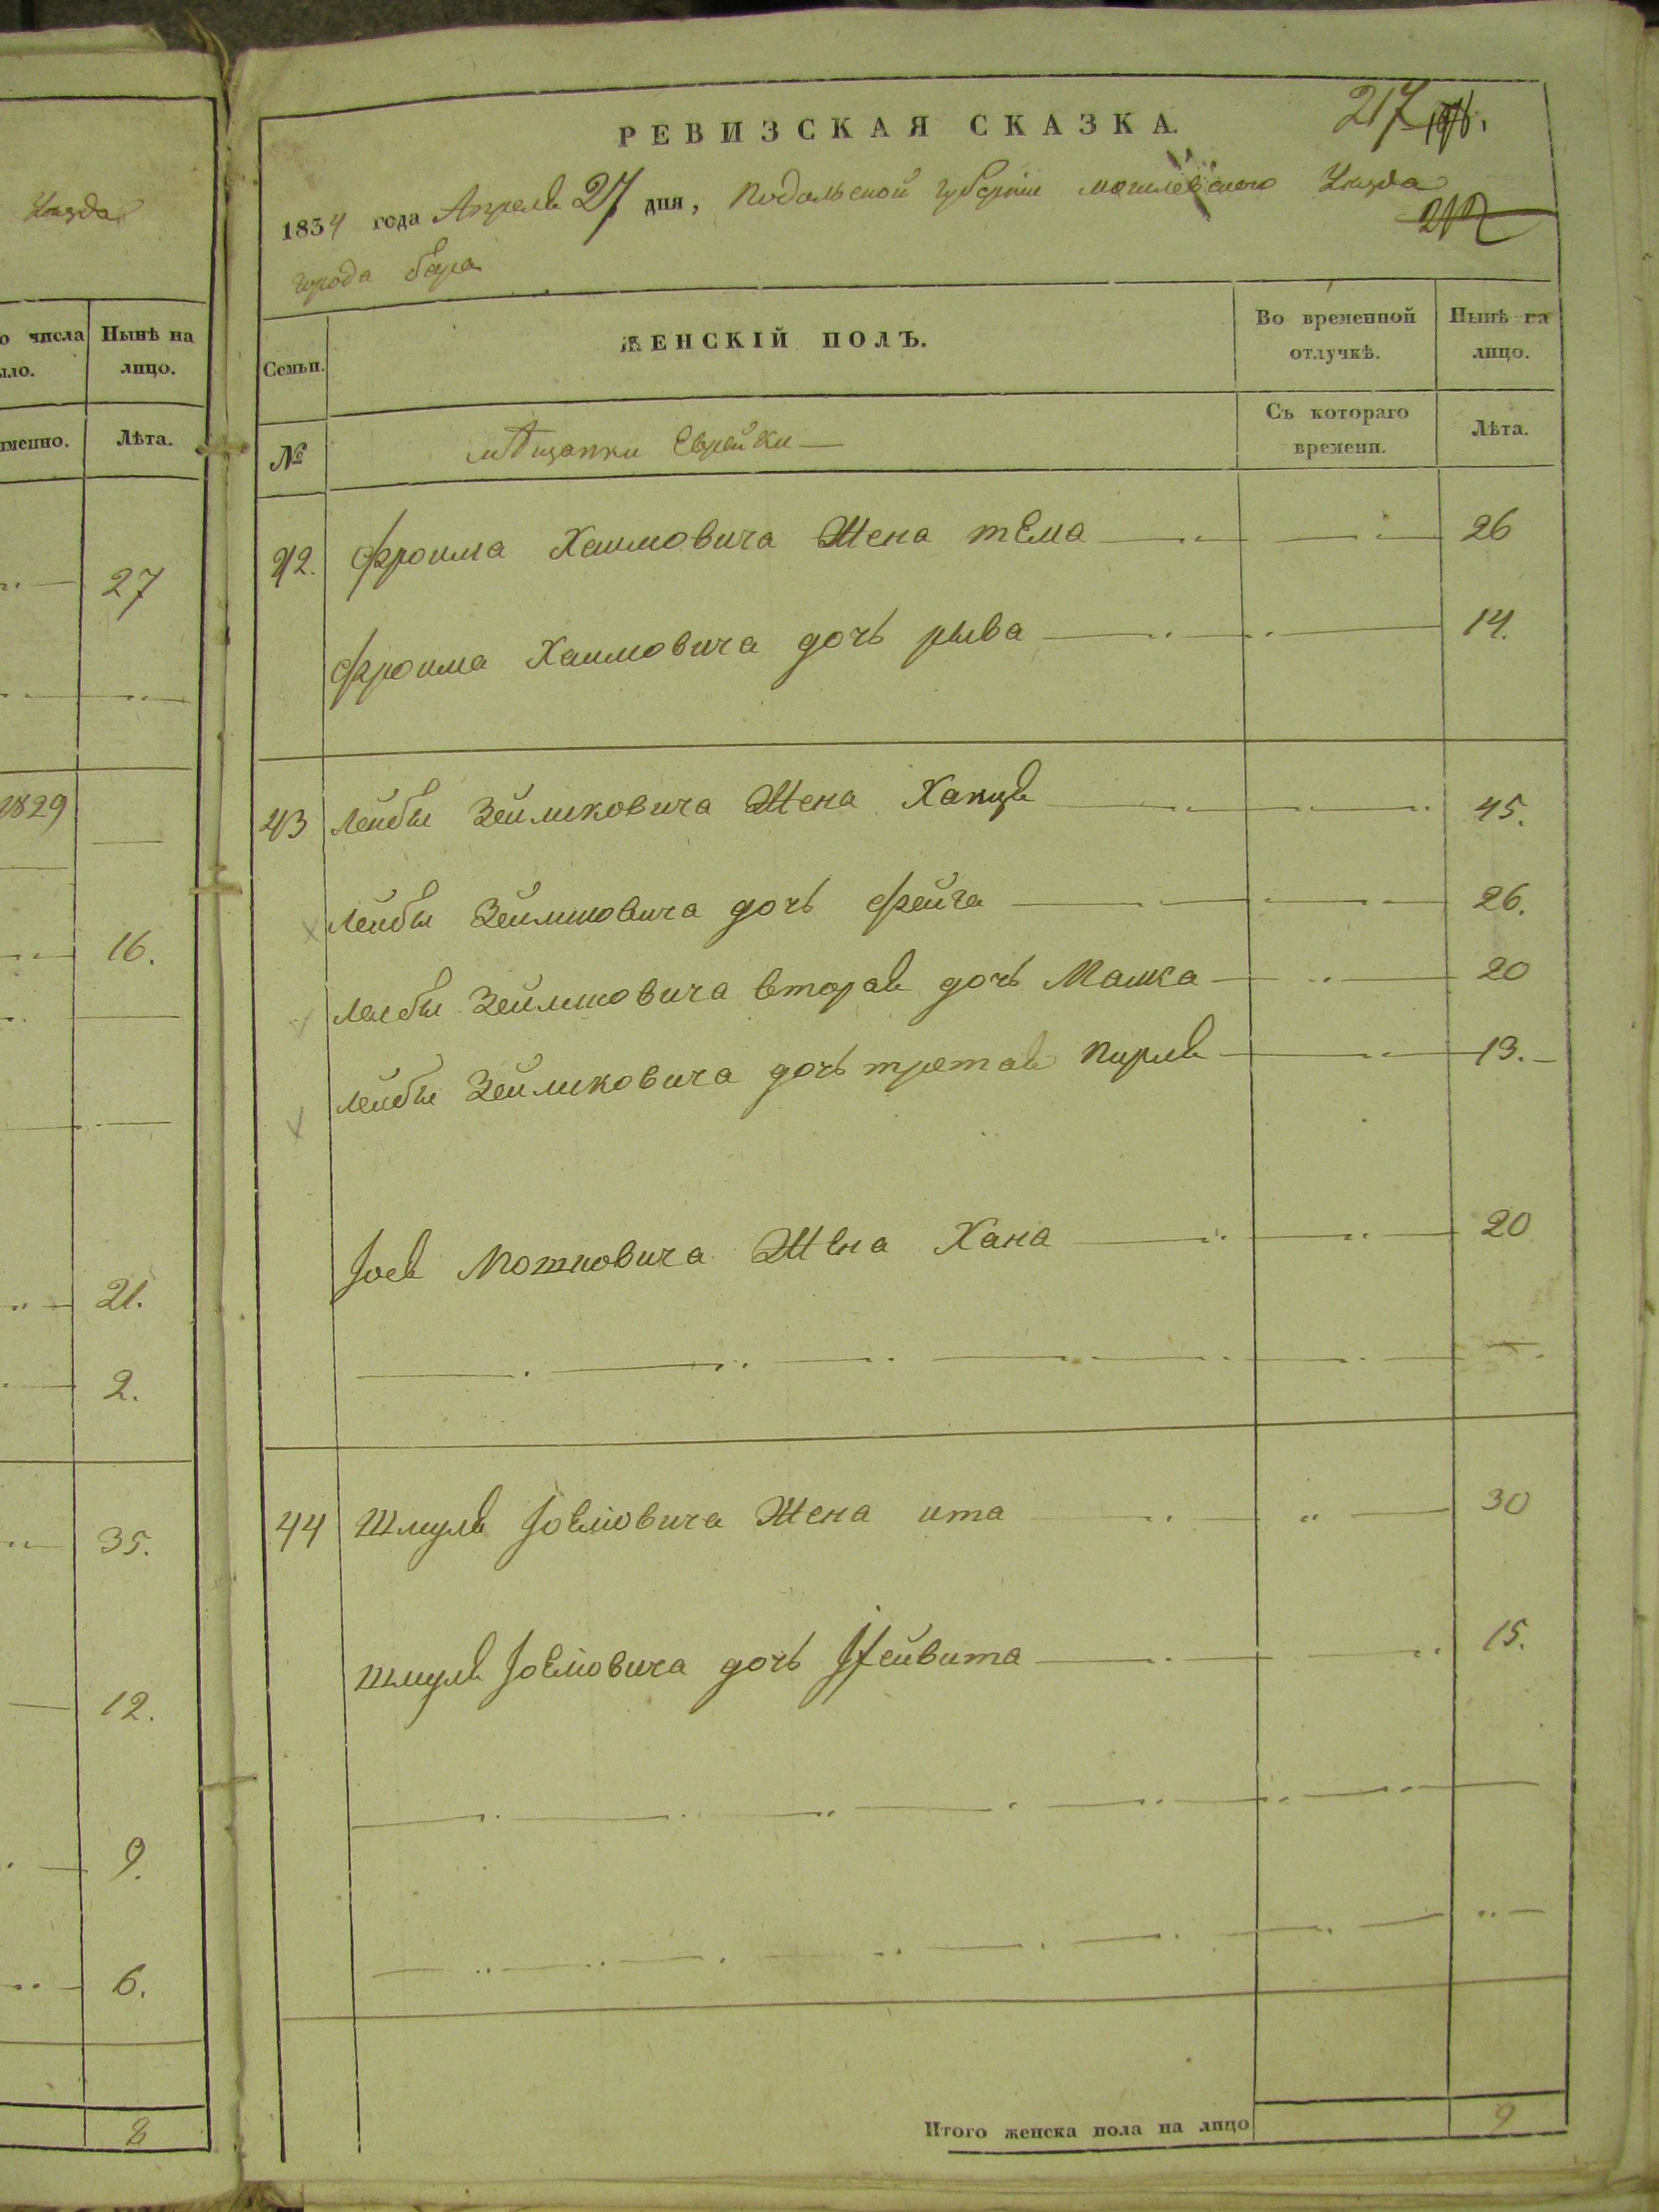 уезда
о числа
ыло.
Нынѣ на
лицо.
именно.
Лѣта.
27
1829
16.
21.
2.
35.
12.
9.
6.
8
РЕВИЗСКАЯ СКАЗКА.
217
1834 года Апреля 27 дня, Подольской губернии могилевского уезда
города бара
Семьи.
ЖЕНСКІЙ ПОЛЪ.
Во временной
отлучкѣ.
Нынѣ на
лицо.
№
мѣщанки Еврейки
Съ котораго
времени.
Лѣта.
42. Фроима Хаимовича Жена тема 26
Фроима Хаимовича дочь рыва 14.
43 Лейбы Зейликовича Жена Ханця 45.
Лейбы Зейликовича дочь Фейга 26.
Лейбы Зейликовича вторая дочь Машка 20
Лейбы Зейликовича дочь третая Пирля 13.
Іося Мошковича Жена Хана 20
44 Шмуля Іосіовича Жена ита 30
Шмуля Іосіовича дочь 15.
Итого женска пола на лицо 9